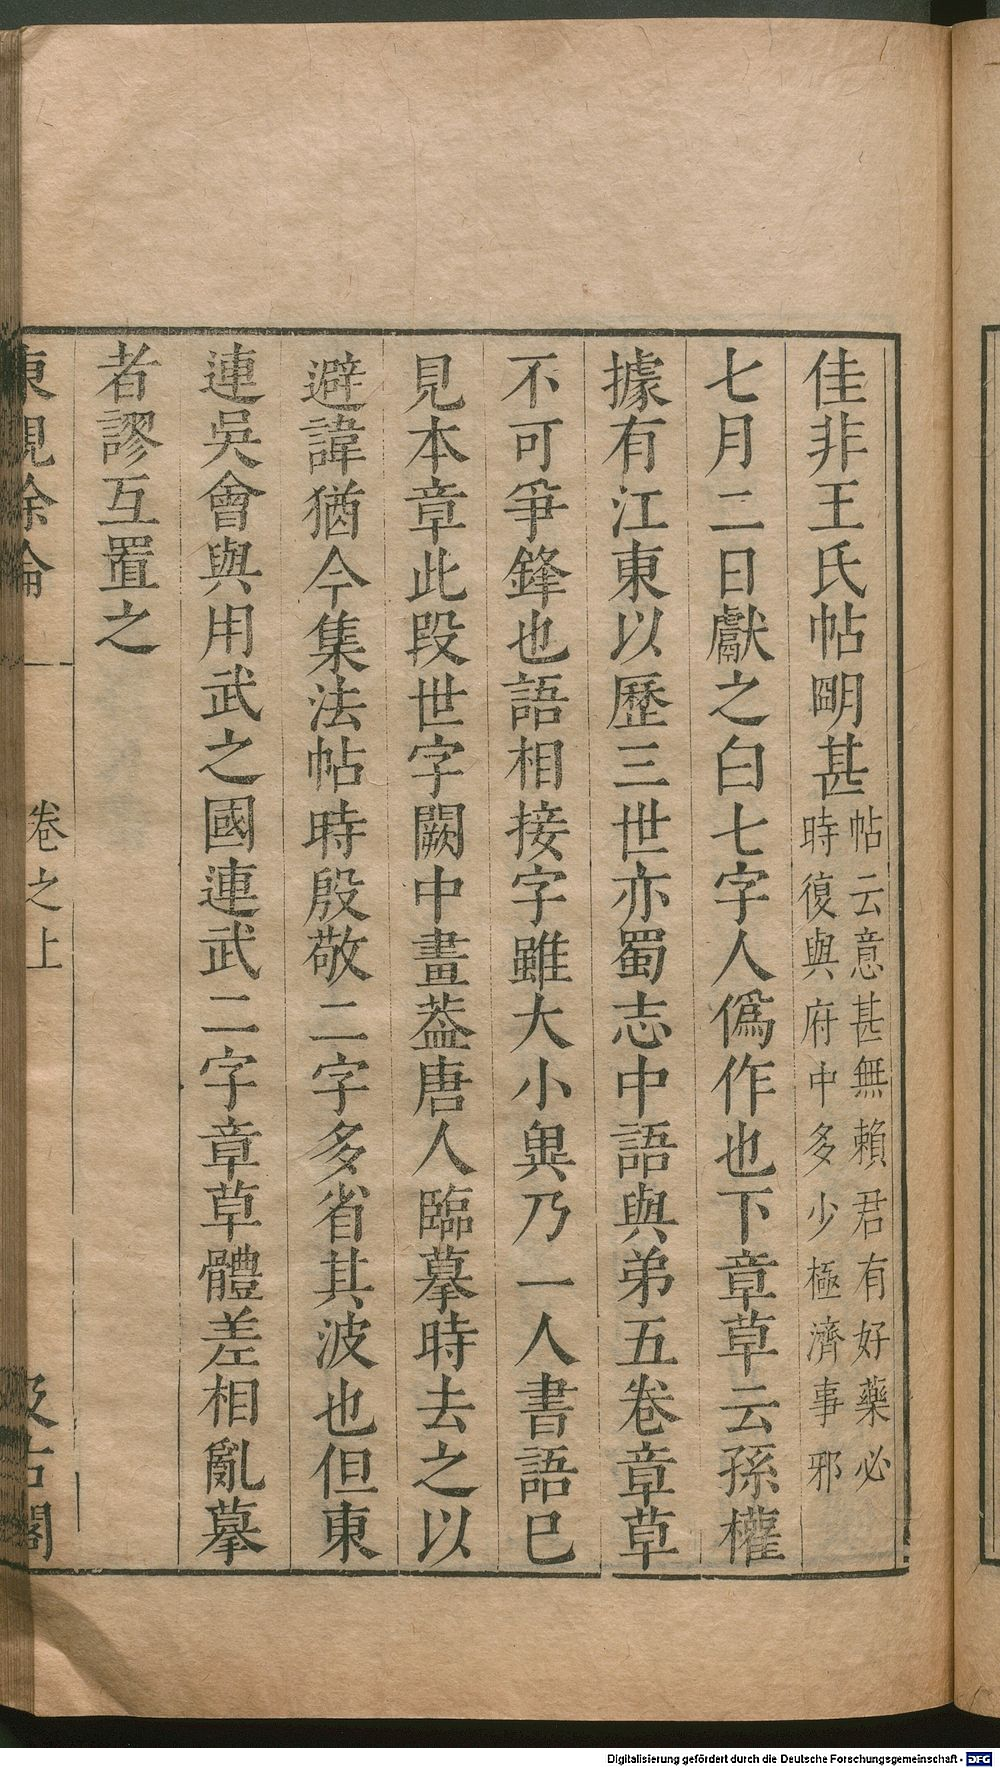 佳非王氏帖明甚帖云意甚無賴君有好藥必時復與府中多少極濟事邪
七月二日獻之白七字人僞作也下章草云孫權
據有江東以歷三世亦蜀志中語與弟五卷章草
不可爭鋒也語相接字雖大小異乃一人書語已
見本章此段世字闕中畫葢唐人臨摹時去之以
避諱猶今集法帖時殷敬二字多省其波也但東
連吳會與用武之國連武二字章草體差相亂摹
者謬互置之
東觀餘論 卷之上 汲古閣
Digitalisierung gefördert durch die Deutsche Forschungsgemeinschaft - DFG